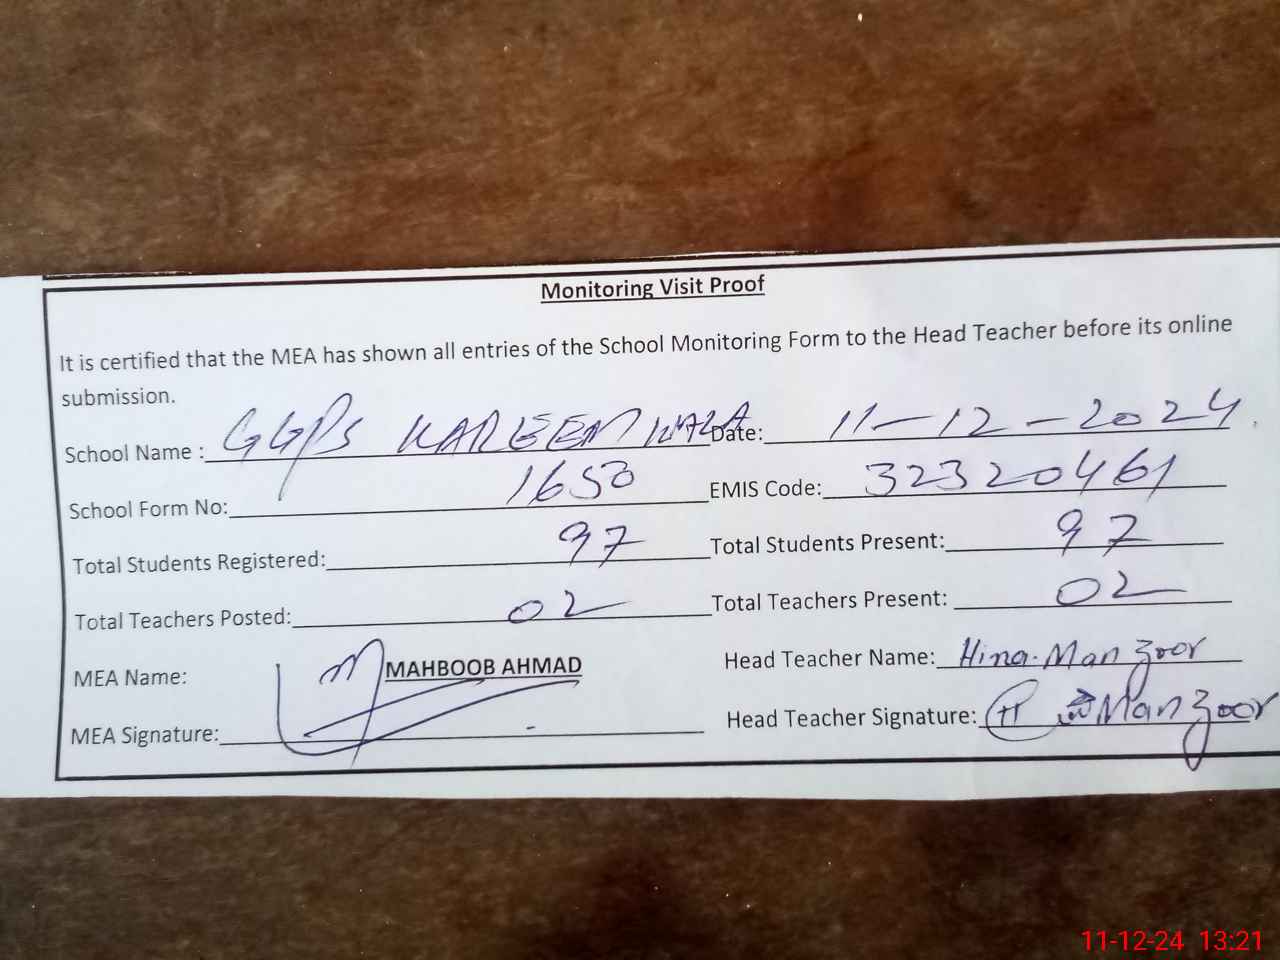 Monitoring Visit Proof
It is certified that the MEA has shown all entries of the School Monitoring Form to the Head Teacher before its online
submission.
School Name : GGPS KAREEM WALA Date: 11-12-2024
School Form No: 1650 EMIS Code: 32320461
Total Students Registered: 97 Total Students Present: 97
Total Teachers Posted: 02 Total Teachers Present: 02
MEA Name: MAHBOOB AHMAD Head Teacher Name: Hina Manzoor
MEA Signature: Head Teacher Signature: Manzoor
11-12-24 13:21